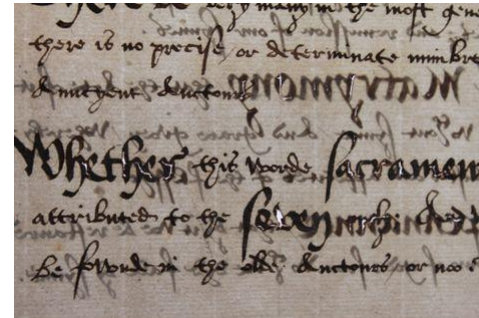 very many in the most gene
there is no precise or determinate numbre
Auncyent Auctours
Whether this worde sacramen
attributed to the seven
be fownde in the olde Auctours or noo